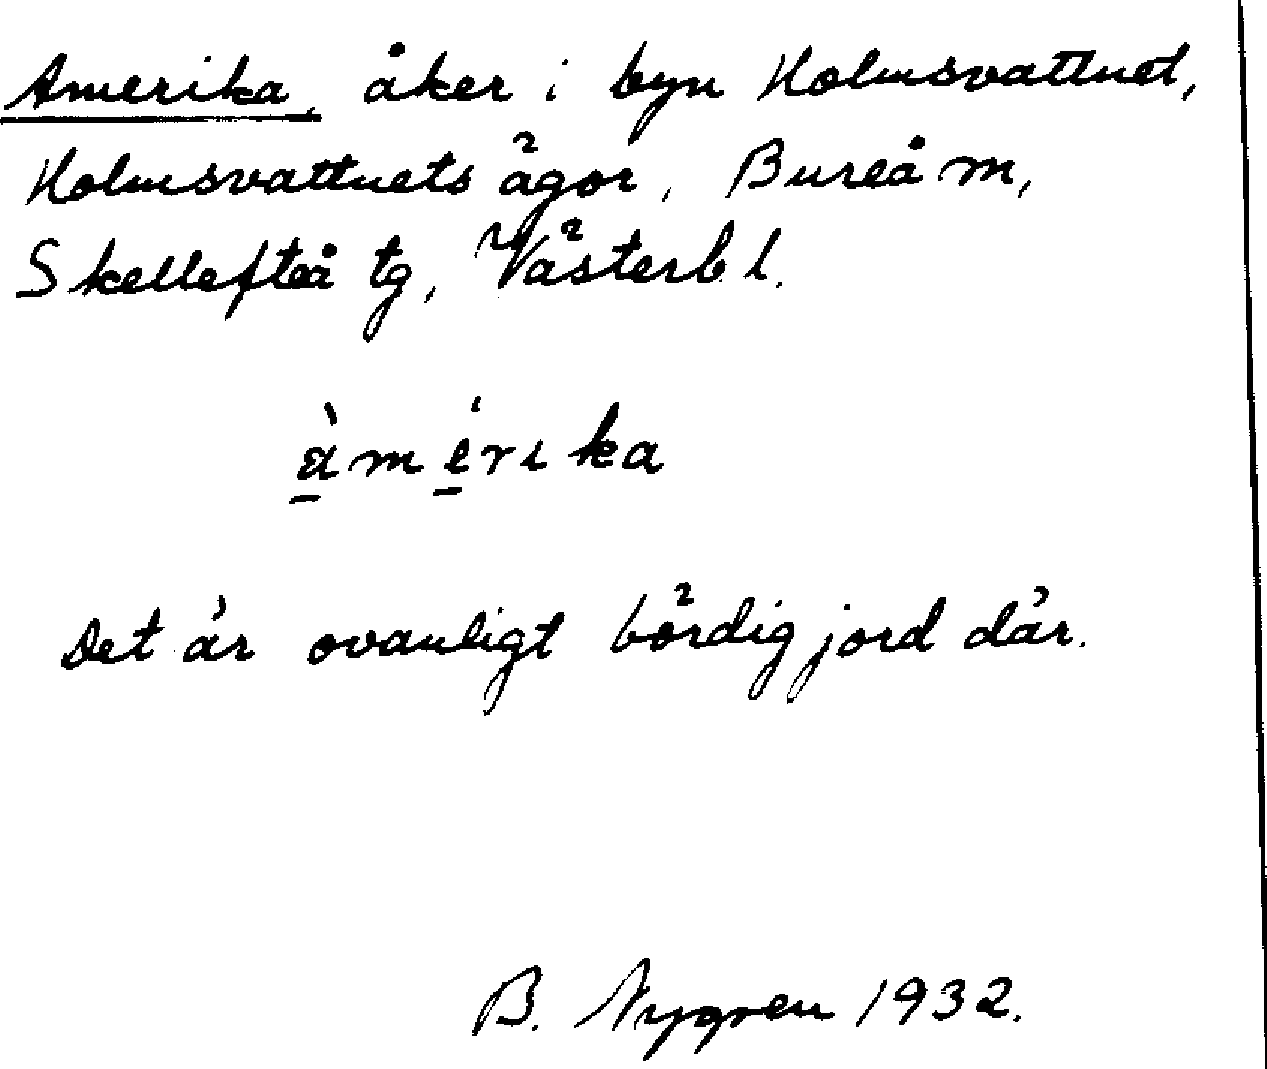 Amerika, åker i byn Holmsvattnet,
Holmsvattnets ägor, Bureå m,
Skellefteå tg, Västerb. l.
àmérika
Det är ovanligt bördig jord där.
B. Nygren 1932.